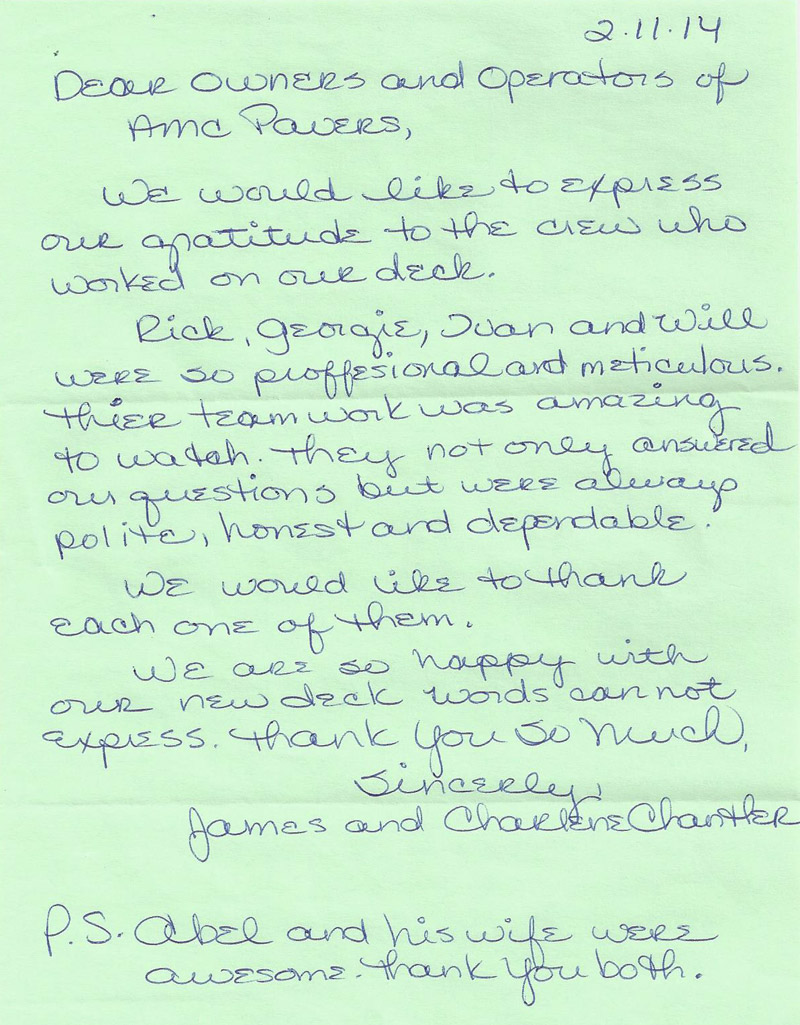 2.11.14
Dear Owners and Operators of
AMC Pavers,
We would like to express
our gratitude to the crew who
worked on our deck.
Rick, Georgie, Juan and Will
were so proffesional and meticulous.
thier teamwork was amazing
to watch. they not only answered
our questions but were always
polite, honest and dependable.
We would like to thank
each one of them.
We are so happy with
our new deck words can not
express. thank you so much,
Sincerly,
James and Charlene Chantler
P.S. Abel and his wife were
awesome. thank you both.